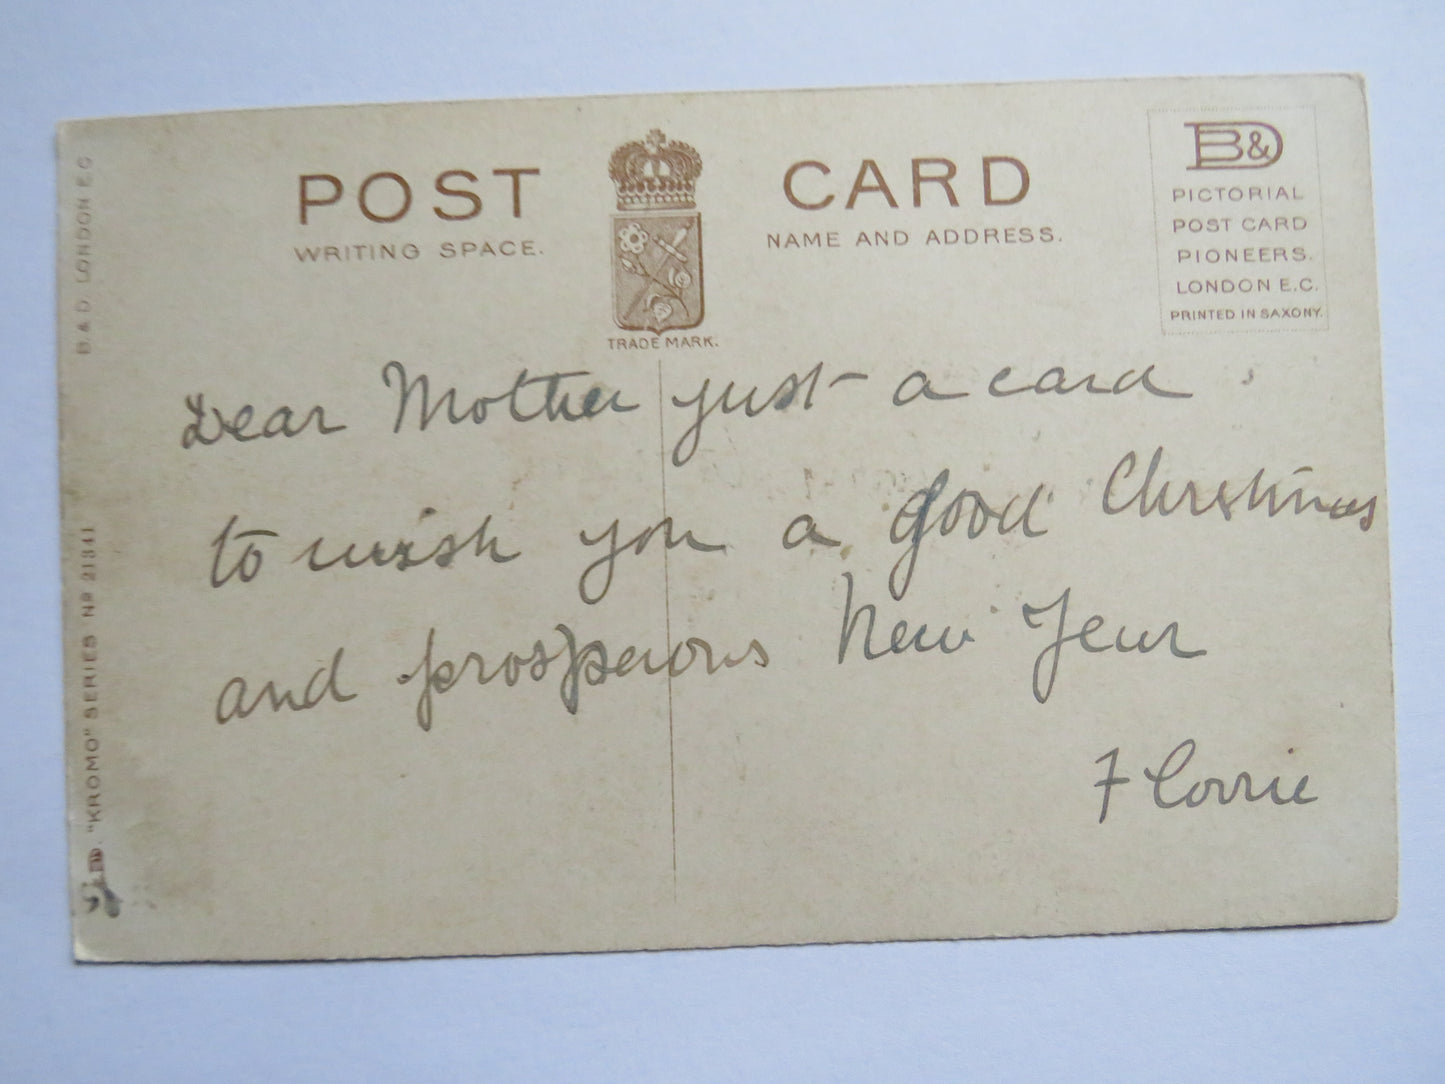 POST CARD
WRITING SPACE.
NAME AND ADDRESS.
TRADE MARK.
B&D
PICTORIAL
POST CARD
PIONEERS.
LONDON E.C.
PRINTED IN SAXONY.
B & D. LONDON E.C
"KROMO" SERIES No 21341
Dear Mother just a card
to wish you a good Christmas
and prosperous New Year
Florrie